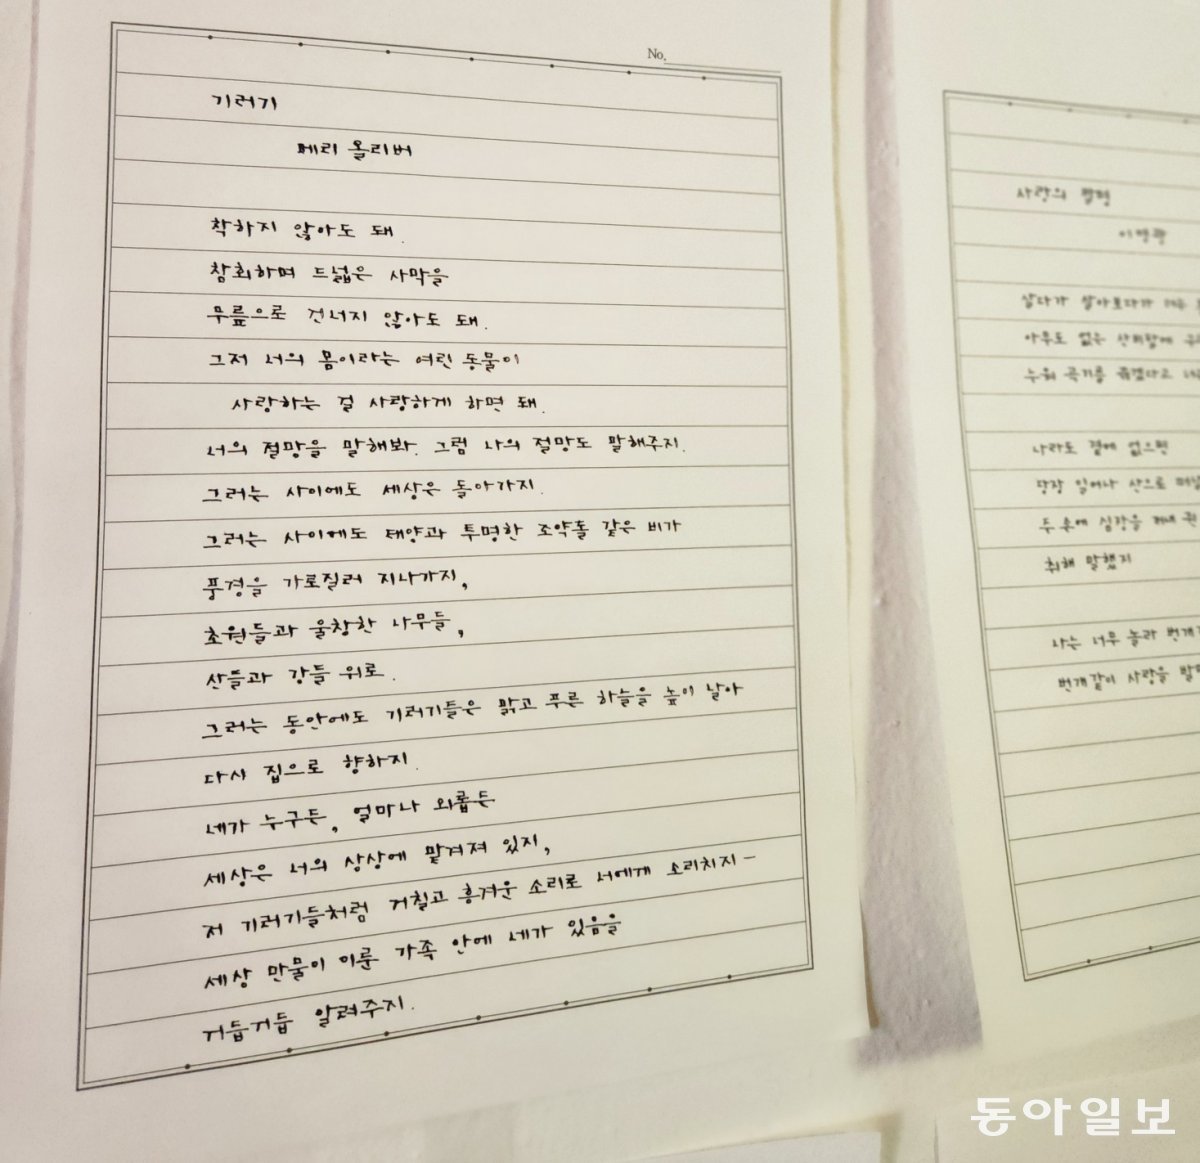 No.
기러기
메리 올리버
착하지 않아도 돼.
참회하며 드넓은 사막을
무릎으로 건너지 않아도 돼.
그저 너의 몸이라는 여린 동물이
사랑하는 걸 사랑하게 하면 돼.
너의 절망을 말해봐. 그럼 나의 절망도 말해주지.
그러는 사이에도 세상은 돌아가지.
그러는 사이에도 태양과 투명한 조약돌 같은 비가
풍경을 가로질러 지나가지,
초원들과 울창한 나무들,
산들과 강들 위로.
그러는 동안에도 기러기들은 맑고 푸른 하늘을 높이 날아
다시 집으로 향하지.
네가 누구든, 얼마나 외롭든
세상은 너의 상상에 맡겨져 있지,
저 기러기들처럼 거칠고 흥겨운 소리로 너에게 소리치지-
세상 만물이 이룬 가족 안에 네가 있음을
거듭거듭 알려주지.
사랑의 발명
이영광
살다가 살아보다가 더는
아무도 없는 산비탈에
누워 곡기를 끊겠다고
나라도 곁에 없으면
당장 일어나 산으로 떠날
두 손에 심장을 꺼내 쥔
취해 말했지
나는 너무 놀라 번개
번개같이 사랑을 발명
동아일보